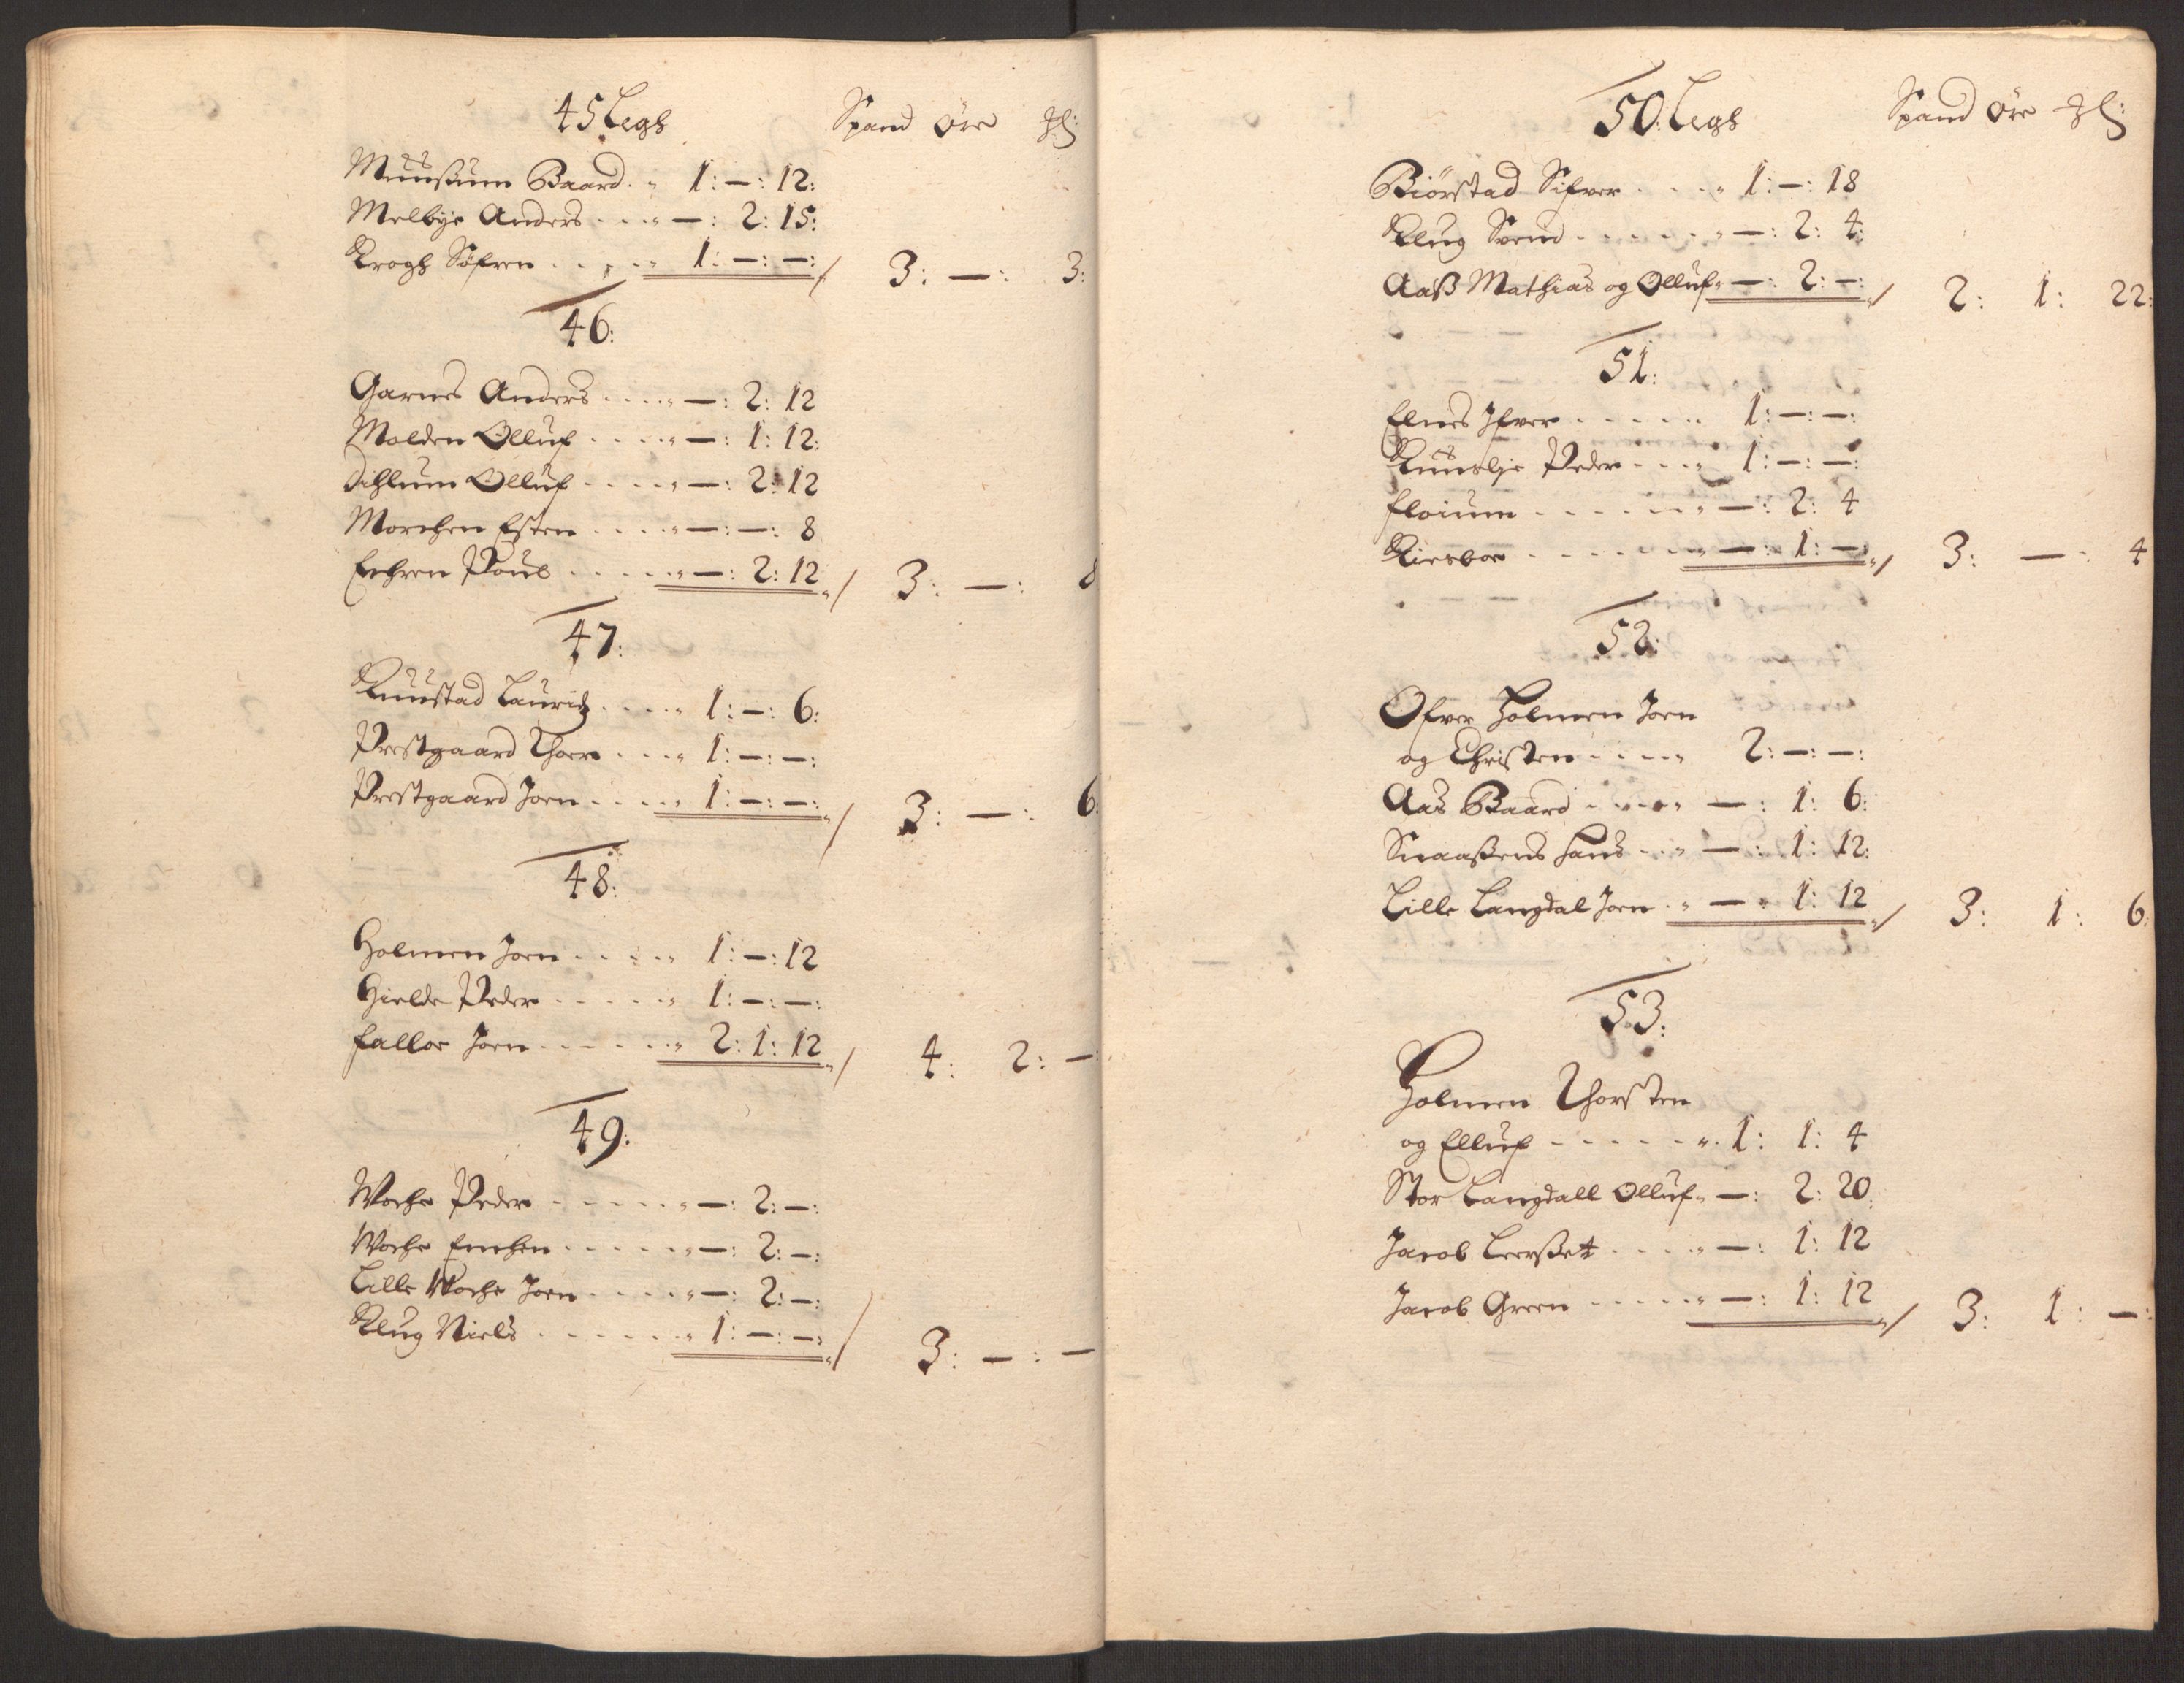 45 Legh Spand Öre
Muusum Baard. 1: —: 12:
Melbye Anders — : 2: 15:
Krogh Söfren 1: —: —: 3: —: 3:
46:
Garnes Anders —: 2: 12
Molden Olluf —: 1: 12:
Dihlum Olluf —: 2: 12
Morchen Esten —: —: 8
Poul —: 2: 12 3: —: 8
47:
Ruustad Lauritz 1: —: 6:
Prestgaard Thore 1: —: —:
Prestgaard Joen 1: —: —: 3: —: 6:
48:
Holmen Joen 1: —: 12
Hielde Peder 1: —: —:
Falloe Joen 2: 1: 12 4: 2: —
49:
Woche Peder —: 2: —:
Woche —: 2: —:
Lille Woche Joen —: 2: —:
Klug Niels 1: —: —: 3: —: —
50: Legh Spand öre
Biörstad Sifver 1: —: 18
Klug Svend —: 2: 4:
Aaß Mathias og Olluf —: 2: —: 2: 1: 22:
51:
Elnes Ifver 1: —: —:
Peder 1: —: —:
Floium —: 2: 4
—: 1: —: 3: —: 4
52:
Ofver Holmen Joen
og Christen 2: —: —:
Aas Baard —: 1: 6:
Snaaßens Hans —: 1: 12:
Lille Langdal Joen — 1: 12 3: 1: 6:
53:
Holmen Thorsten
og Elluf 1: 1: 4
Stor Langdall Olluf —: 2: 20:
Jacob Leerßet —: 1: 12
Jacob Green —: 1: 12 3: 1: —: